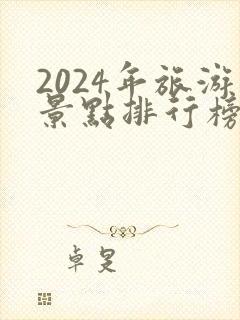 2024年旅游
景點排行榜
卓旻